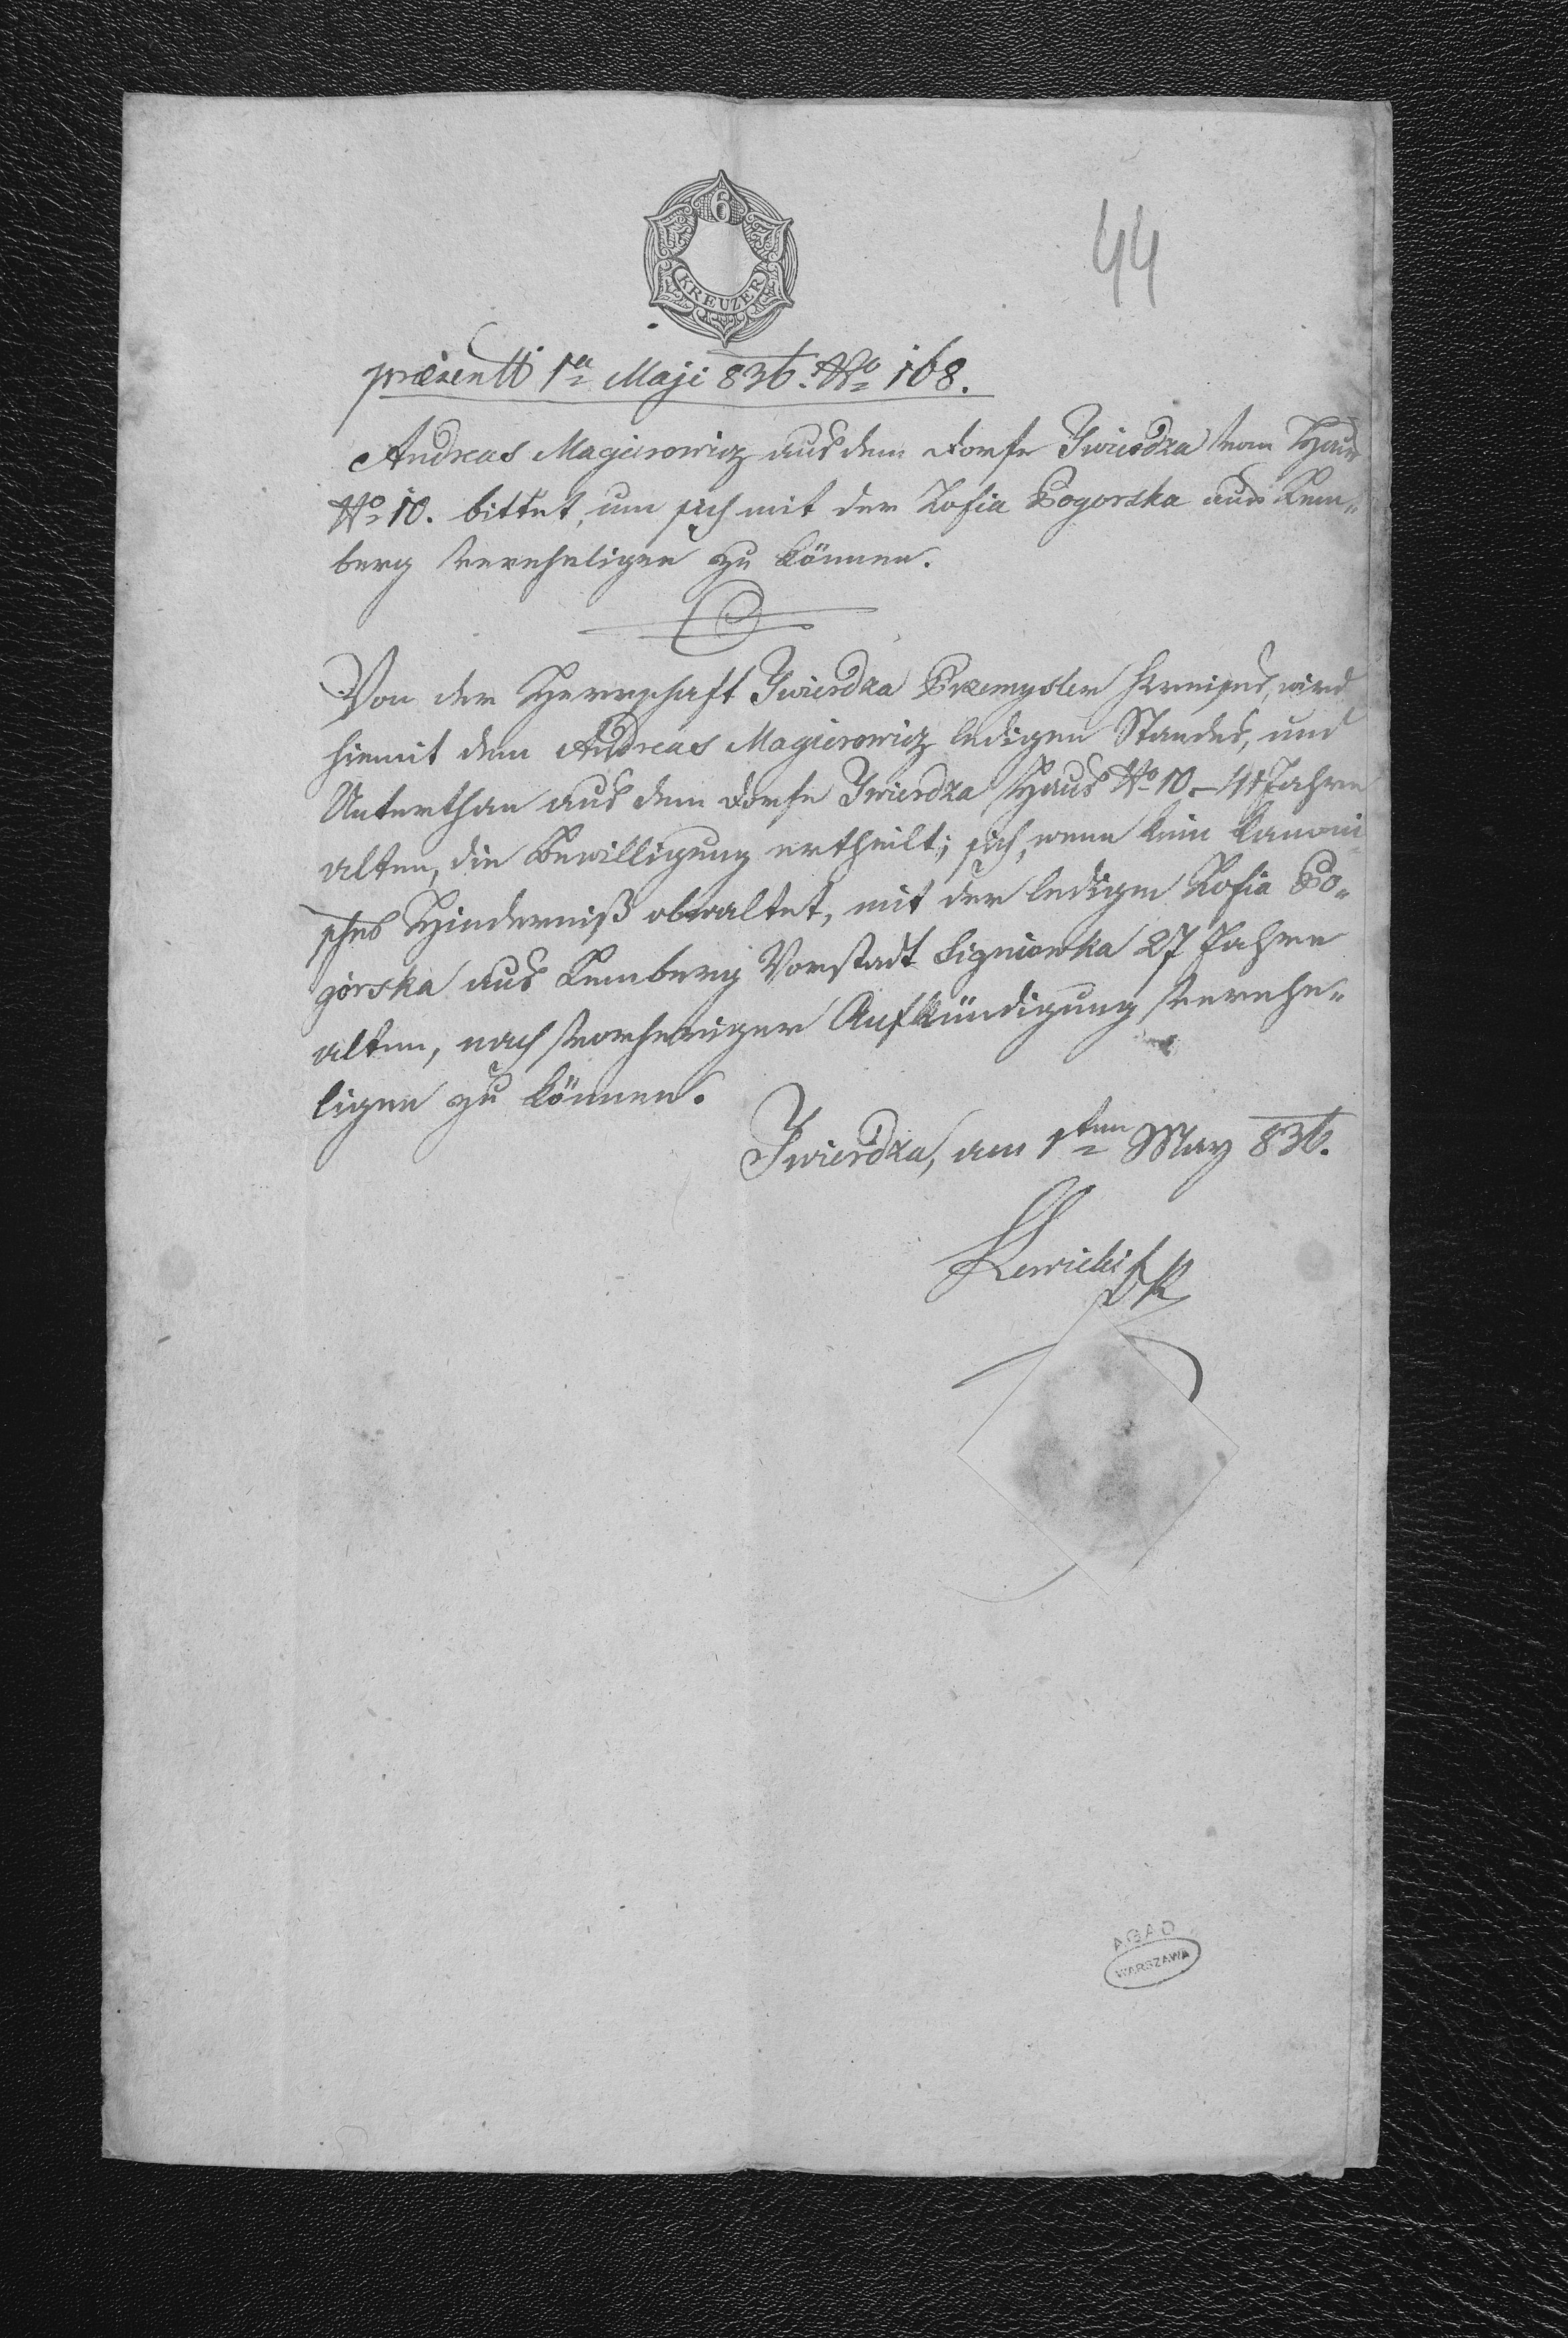 6
KREUZER
44
præsentt 1a Maji 836. No 168.
Andreas Magierowicz aus dem Dorfe Twierdza vom Haus
No 10. bittet, um sich mit der Zofia Pogorska aus Lem„
berg verehligen zu können.
Von der Herrschaft Twierdza Przemysler Kreises, wird
hiemit dem Andreas Magierowicz ledigen Standes, und
Unterthan aus dem Dorfe Twierdza Haus No 10 – 41 Jahre
alten, die Bewilligung ertheilt; sich, wenn kein kanoni„
sches Hinderniß obwaltet, mit der ledigen Zofia Po„
górska aus Lemberg Vorstadt Signiowka 27 Jahre
alten, nach vorheriger Aufkündigung verehe„
ligen zu können.
Twierdza, am 1ten May 836.
AGAD
WARSZAWA